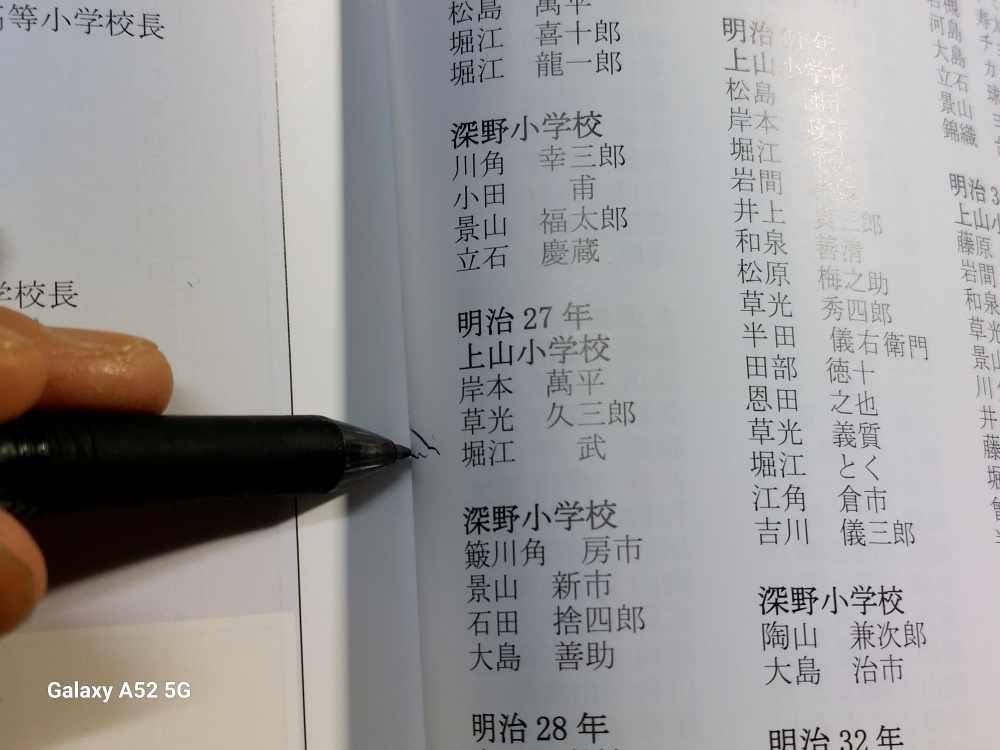 高等小学校長
学校長
松島 萬平
堀江 喜十郎
堀江 龍一郎
深野小学校
川角 幸三郎
小田 甫
景山 福太郎
立石 慶蔵
明治27年
上山小学校
岸本 萬平
草光 久三郎
堀江 武
深野小学校
簸川角 房市
景山 新市
石田 捨四郎
大島 善助
明治28年
明治 年
上山小学校
松島
岸本
堀江
岩間
井上 
和泉 善清
松原 梅之助
草光 秀四郎
半田 儀右衛門
田部 徳十
恩田 之也
草光 義質
堀江 とく
江角 倉市
吉川 儀三郎
深野小学校
陶山 兼次郎
大島 治市
明治32年
河島
大島
立石
景山
錦織
明治3
上山小
藤原
岩間
和泉
草光
景山
川
井
藤
堀
Galaxy A52 5G